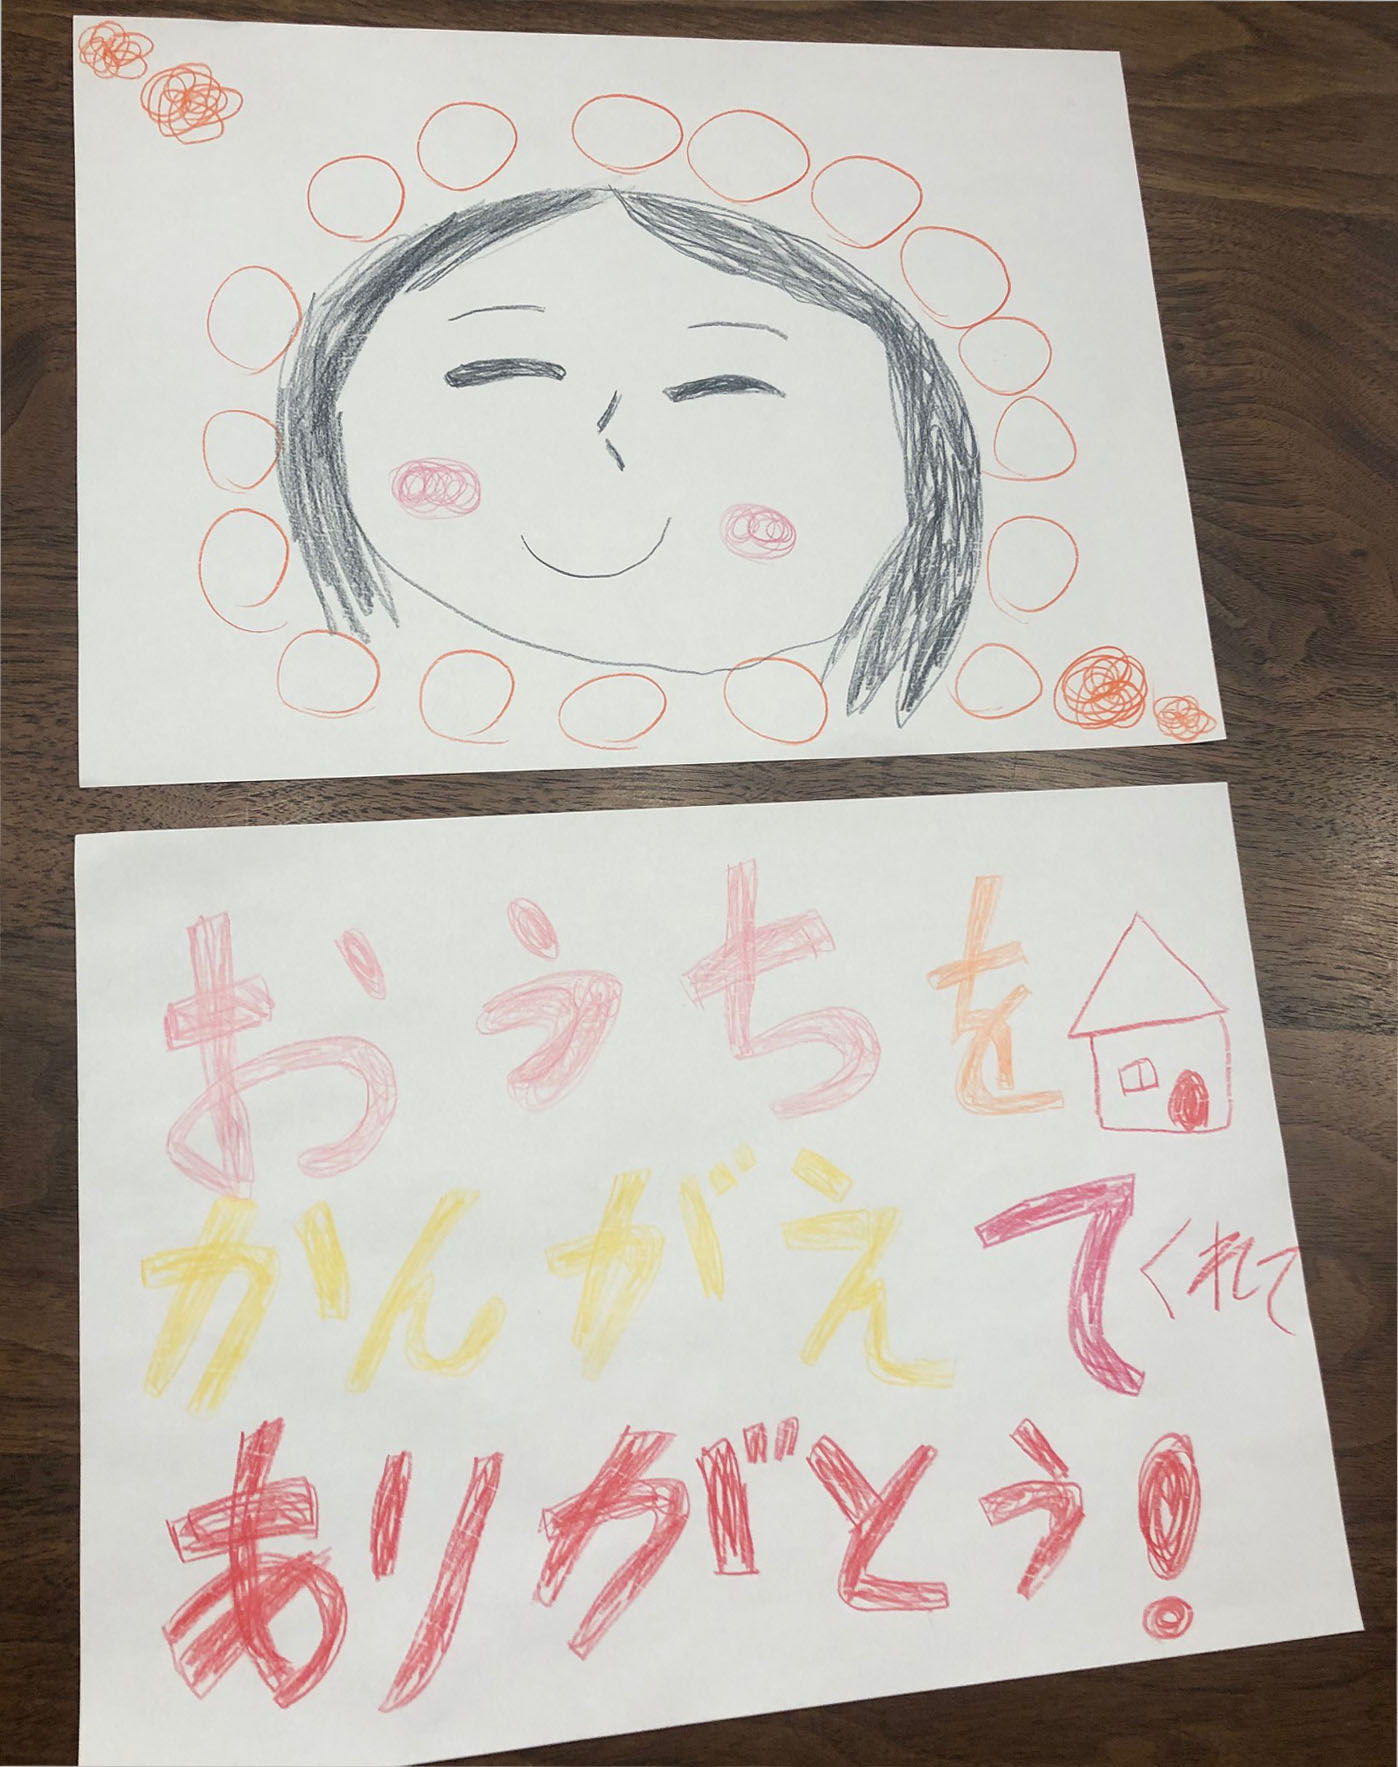 おうちを
かんがえてくれて
ありがとう!